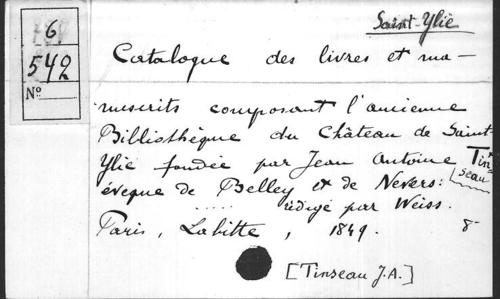 Saint-Ylie
6
542
No
Catalogue des livres et ma-
nuscrits composant l'ancienne
Billiothèque du Château de Saint
Ylie fondée par Jean Antoine Tin-
seau
évêque de Belley et de Nevers:
..... rédigé par Weiss.
Paris, Labitte, 1849. 8°
[Tinseau J.A.]